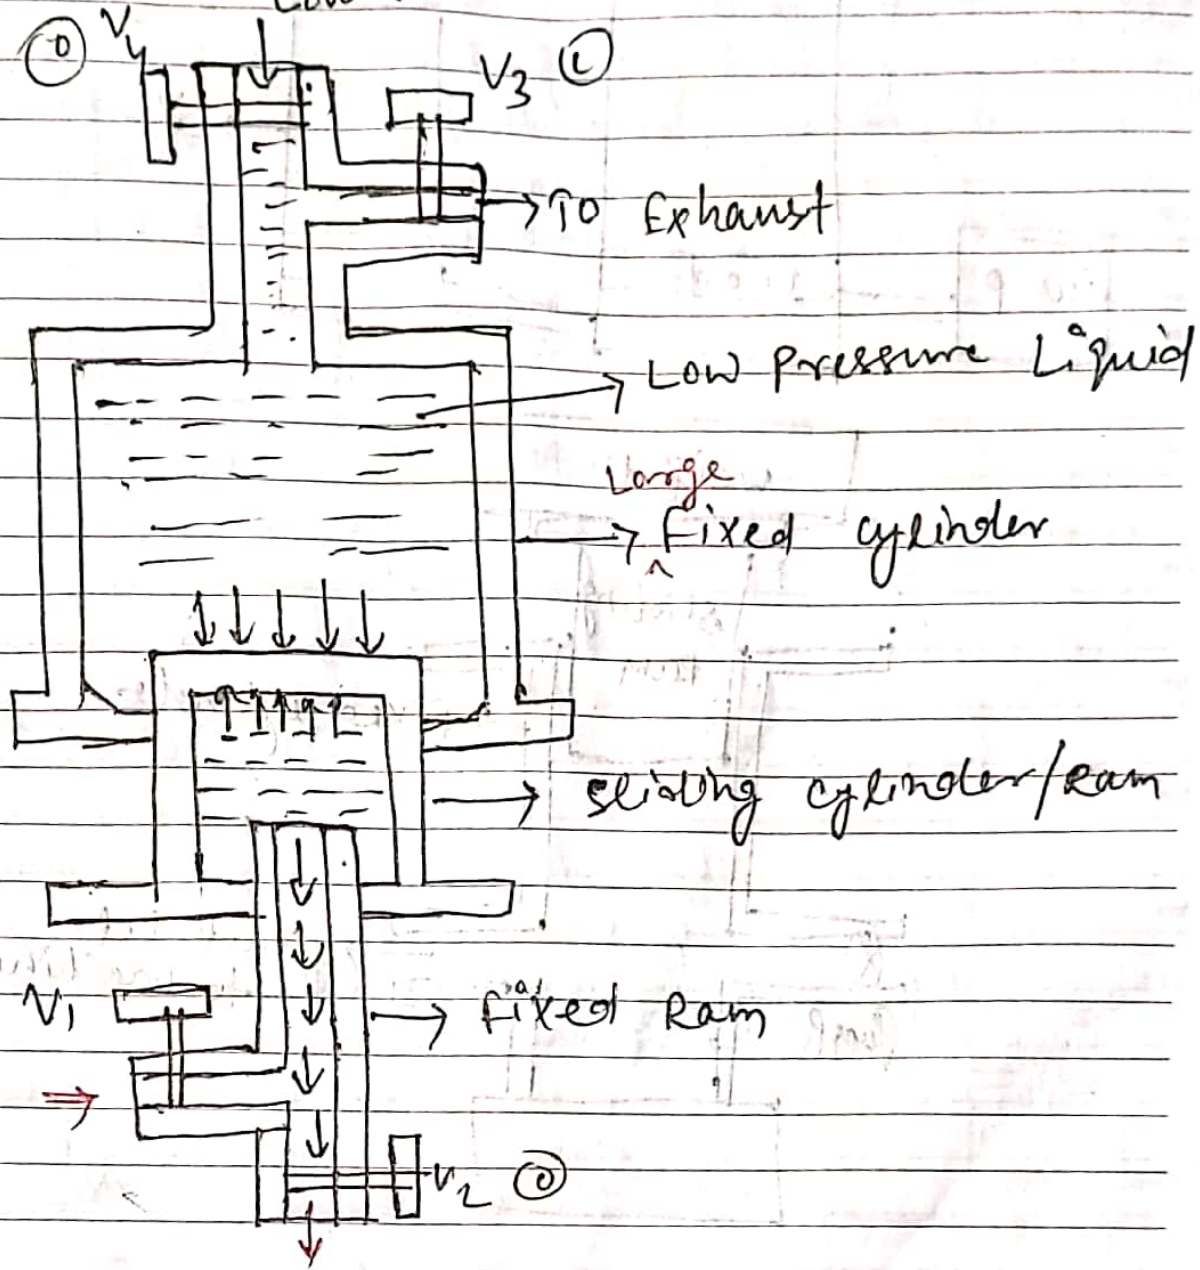 Low
O V4
V3 C
→ To Exhaust
Low Pressure Liquid
Large
^ Fixed cylinder
Sliding cylinder/Ram
V1
Fixed Ram
V2 O